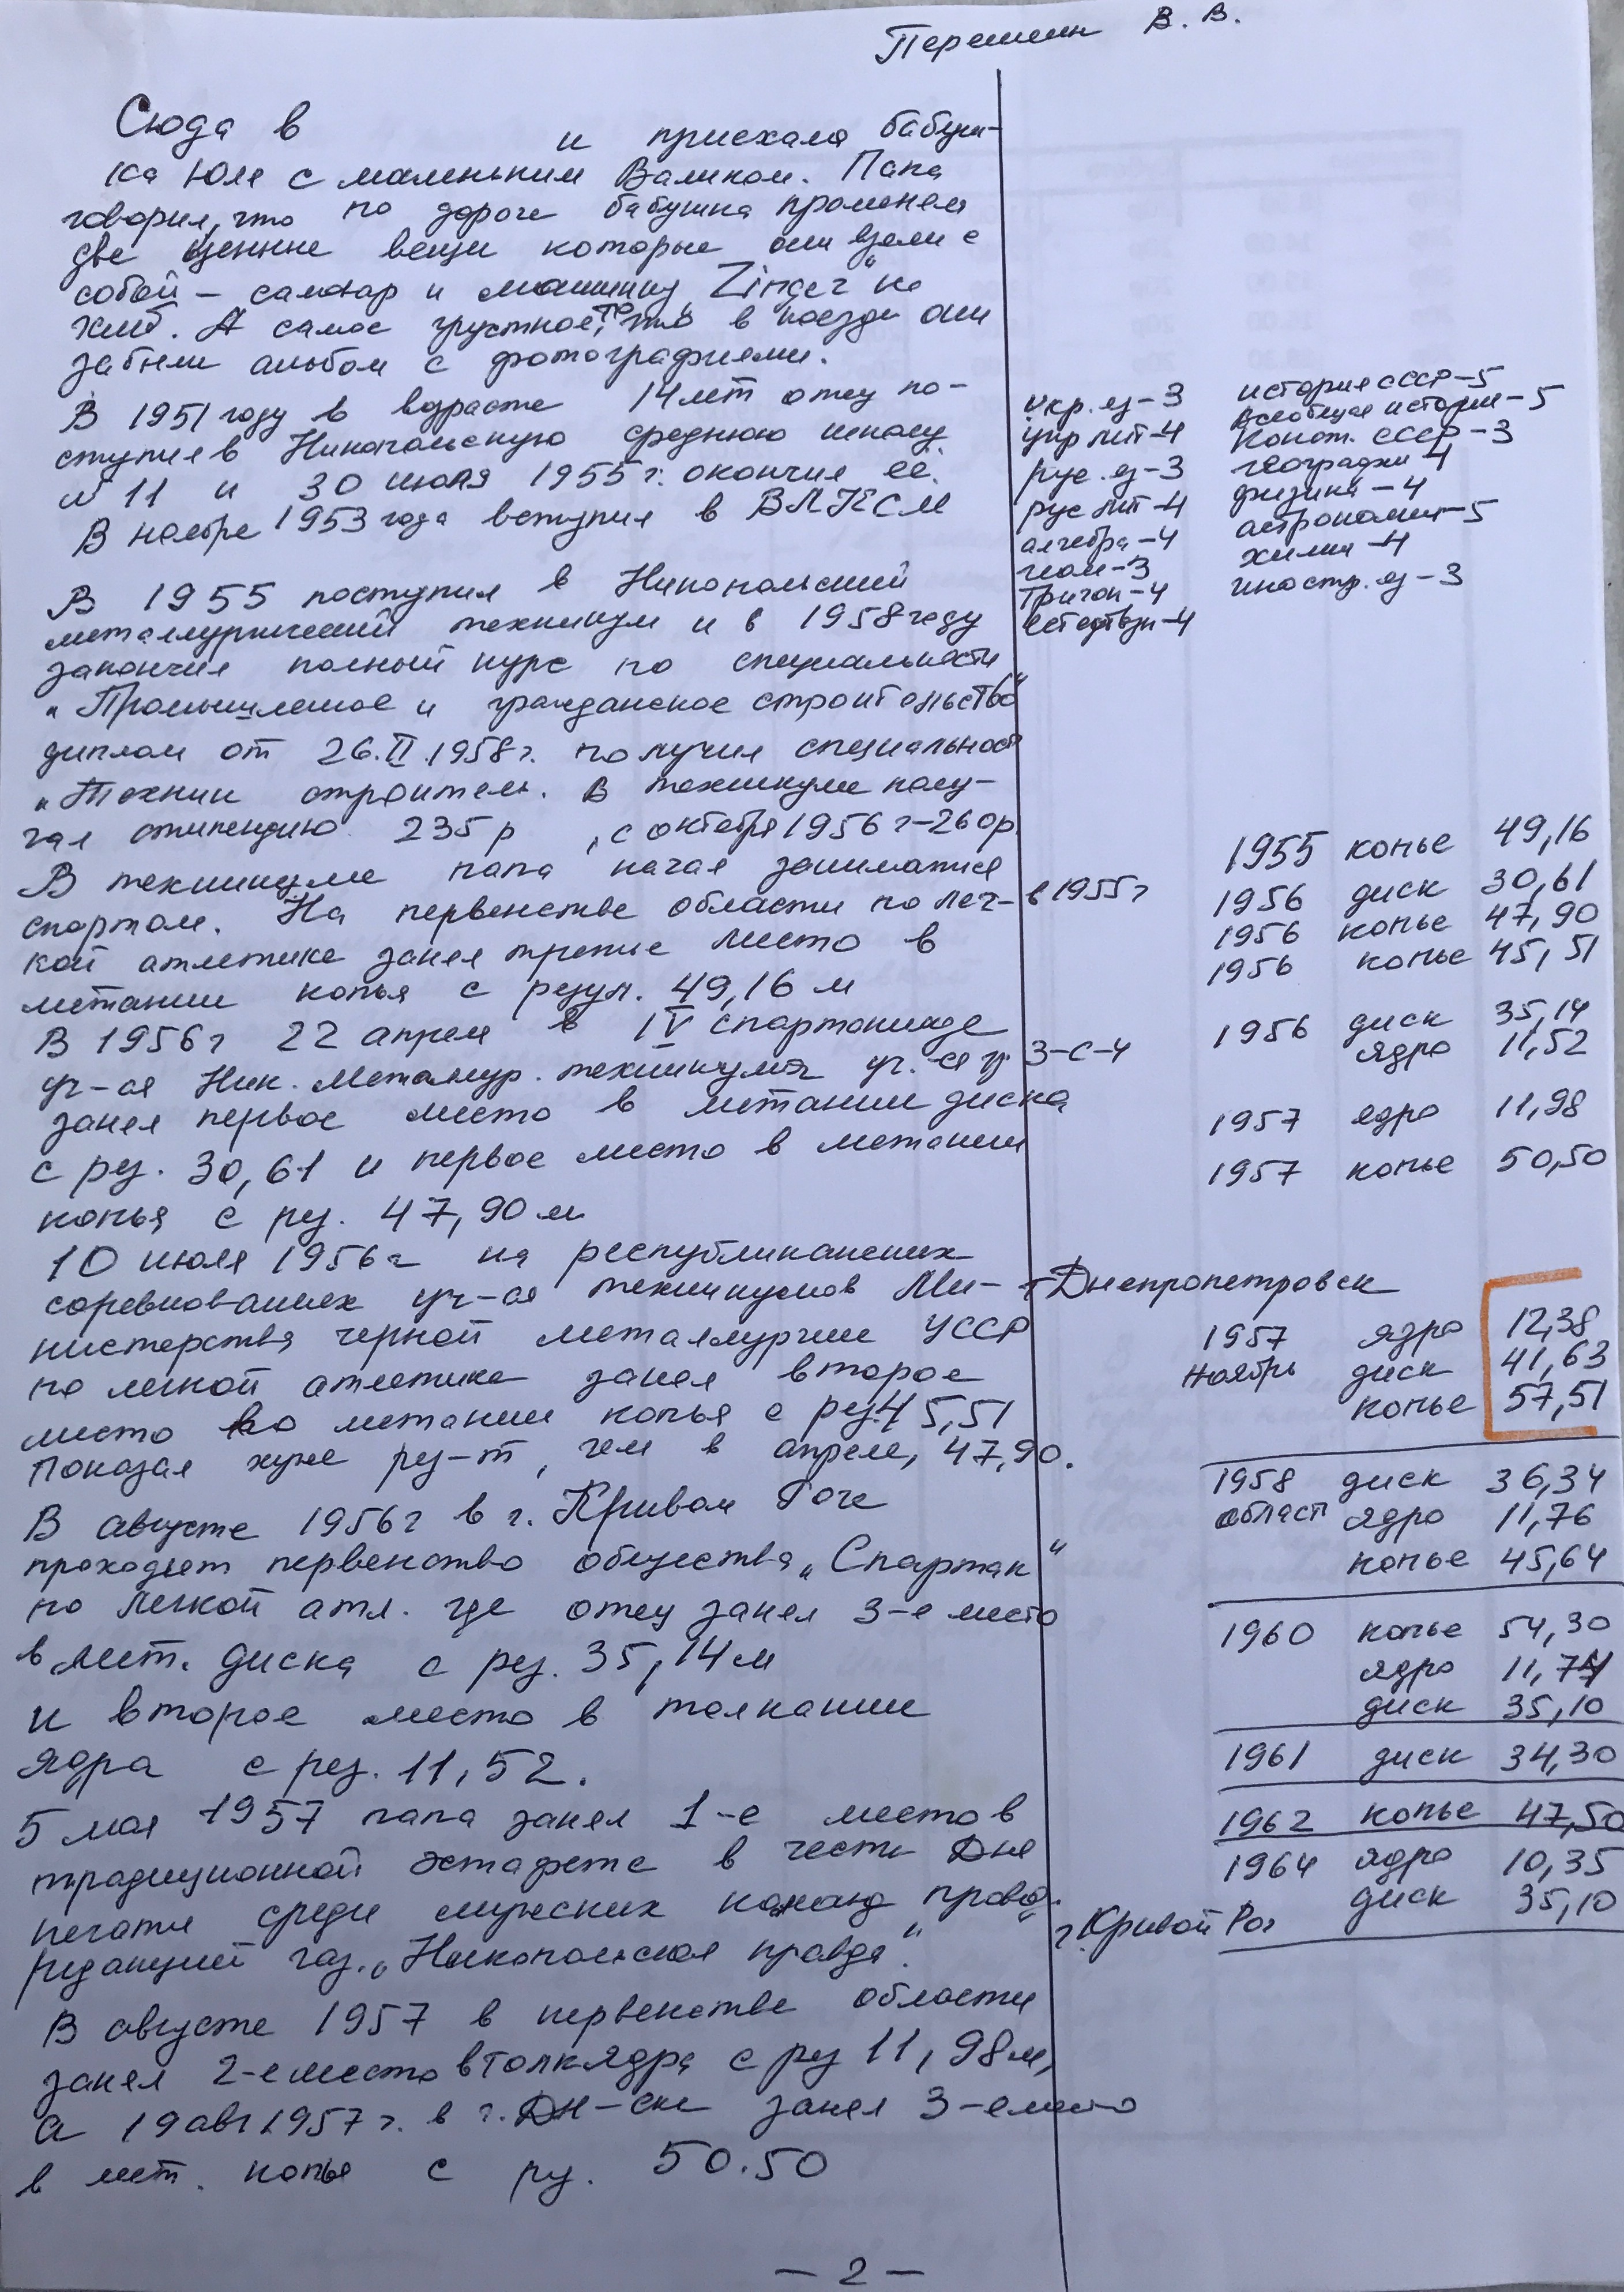 Перешеин В. В.
Сюда в и приехала бабуш-
ка Юля с маленьким Валиком. Папа
говорил, что по дороге бабушка променяла
две ценные вещи которые они взяли с
собой – самовар и машинку „Zinger“ на
хлеб. А самое грустное, то что в поезде они
забыли альбом с фотографиями.
В 1951 году в возрасте 14 лет отец по-
ступил в Никопольскую среднюю школу
N 11 и 30 июля 1955 г. окончил её.
В ноябре 1953 года вступил в ВЛКСМ
В 1955 поступил в Никопольский
металлургический техникум и в 1958 году
закончил полный курс по специальности
„Промышленное и гражданское строительство“
диплом от 26.II.1958г. получил специальност
„Техник строитель. В техникуме полу-
чал стипендию 235 р , с октября 1956 г – 260р.
В техникуме папа начал заниматься
спортом. На первенстве области по лег-
кой атлетике занял третье место в
метании копья с резул. 49,16 м
В 1956г 22 апреля в IV спартакиаде
уч-ся Ник. Металлур. техникума уч-ся гр 3-С-4
занял первое место в метании диска
с рез. 30,61 и первое место в метании
копья с рез. 47,90 м
10 июля 1956г на республиканских
соревнованиях уч-ся техникумов Ми-
нистерства черной металлургии УССР
по легкой атлетике занял второе
место во метании копья с рез. 45,51
Показал хуже рез-т, чем в апреле, 47,90.
В августе 1956г в г. Кривом Роге
проходят первенство общества „Спартак“
по легкой атл. где отец занял 3-е место
в мет. диска с рез. 35,14 м
и второе место в толкании
ядра с рез. 11,52.
5 мая 1957 папа занял 1-е место в
традиционной эстафете в честь Дня
печати среди мужских команд провод.
редакцией газ. „Никопольская правда“.
В августе 1957 в первенстве области
занял 2-е место в толк ядра с рез 11,98м,
а 19 авг 1957 г. в г. Дн-ске занял 3-е место
в мет. копья с рез. 50.50
укр. яз – 3
укр лит – 4
рус. яз – 3
рус лит – 4
алгебра – 4
геом – 3
Тригон – 4
естествозн – 4
история СССР – 5
Всеобщая история – 5
Конст. СССР – 3
география 4
физика – 4
астрономия – 5
химия – 4
иностр. яз – 3
в 1955 г
г Днепропетровск
г. Кривой Рог
1955 копье 49,16
1956 диск 30,61
1956 копье 47,90
1956 копье 45,51
1956 диск 35,14
ядро 11,52
1957 ядро 11,98
1957 копье 50,50
1957 ядро 12,38
ноябрь диск 41,63
копье 57,51
1958 диск 36,34
област ядро 11,76
копье 45,64
1960 копье 54,30
ядро 11,74
диск 35,10
1961 диск 34,30
1962 копье 47,50
1964 ядро 10,35
диск 35,10
– 2 –